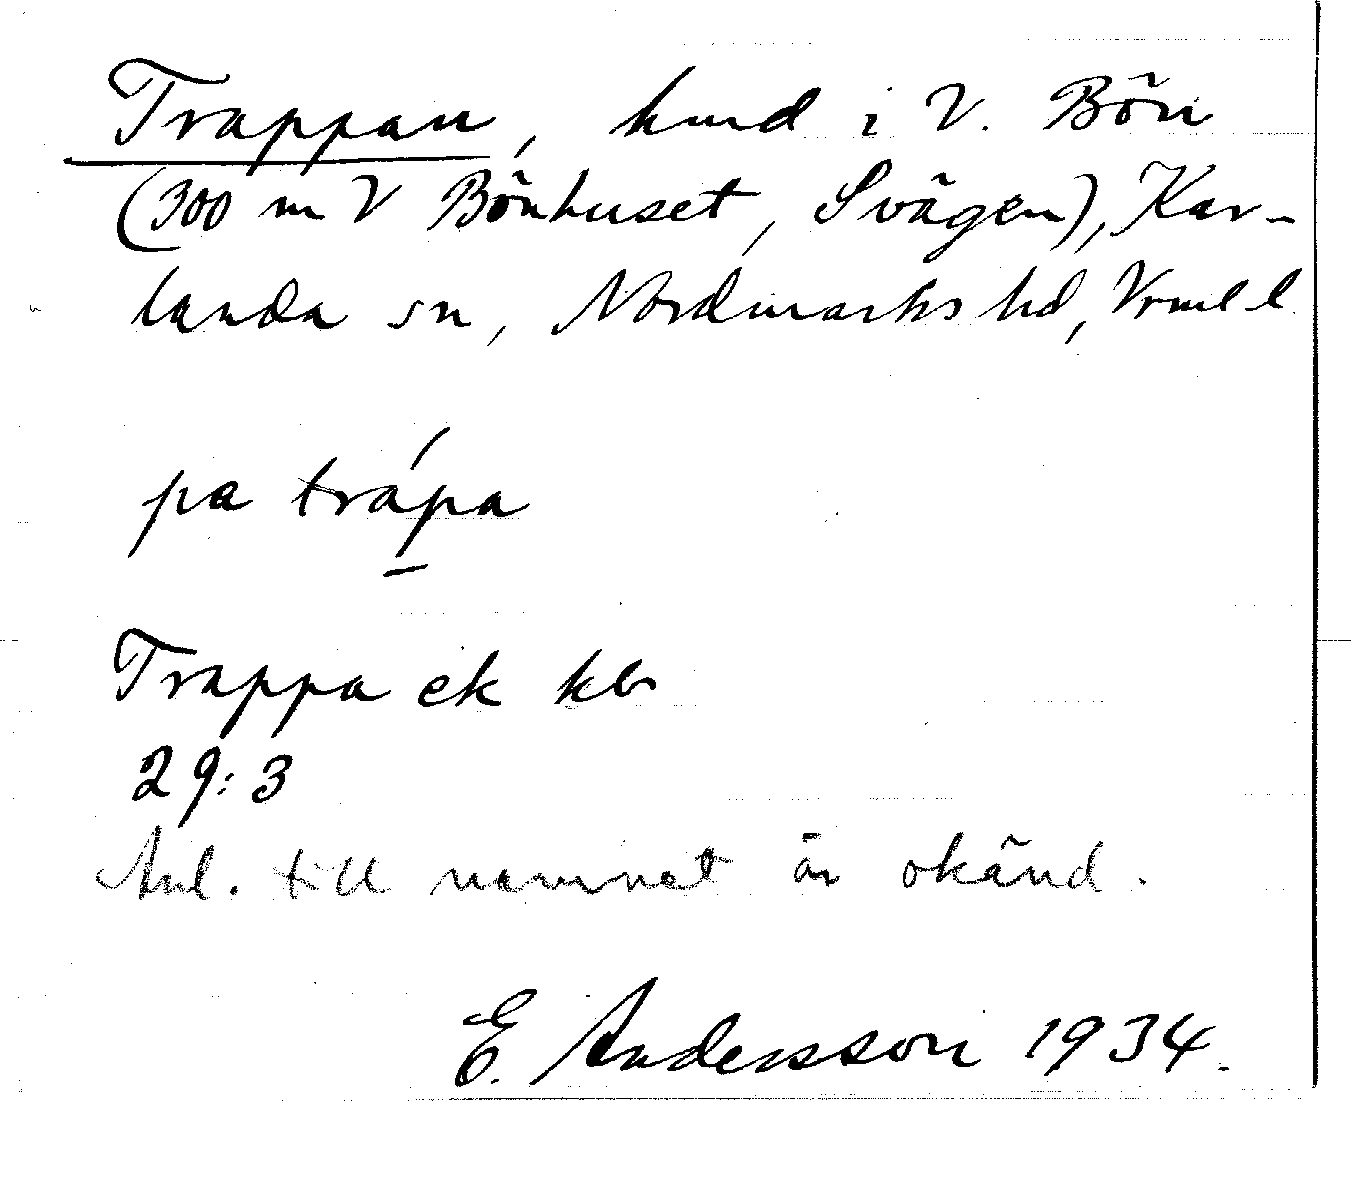 Trappan, hmd i V. Bön
(300 m V Bönhuset, Svägen), Kar-
landa sn, Nordmarks hd, Vrml l
på trápa
Trappa ek kbr
29:3
Anl. till namnet är okänd.
E. Andersson 1934.